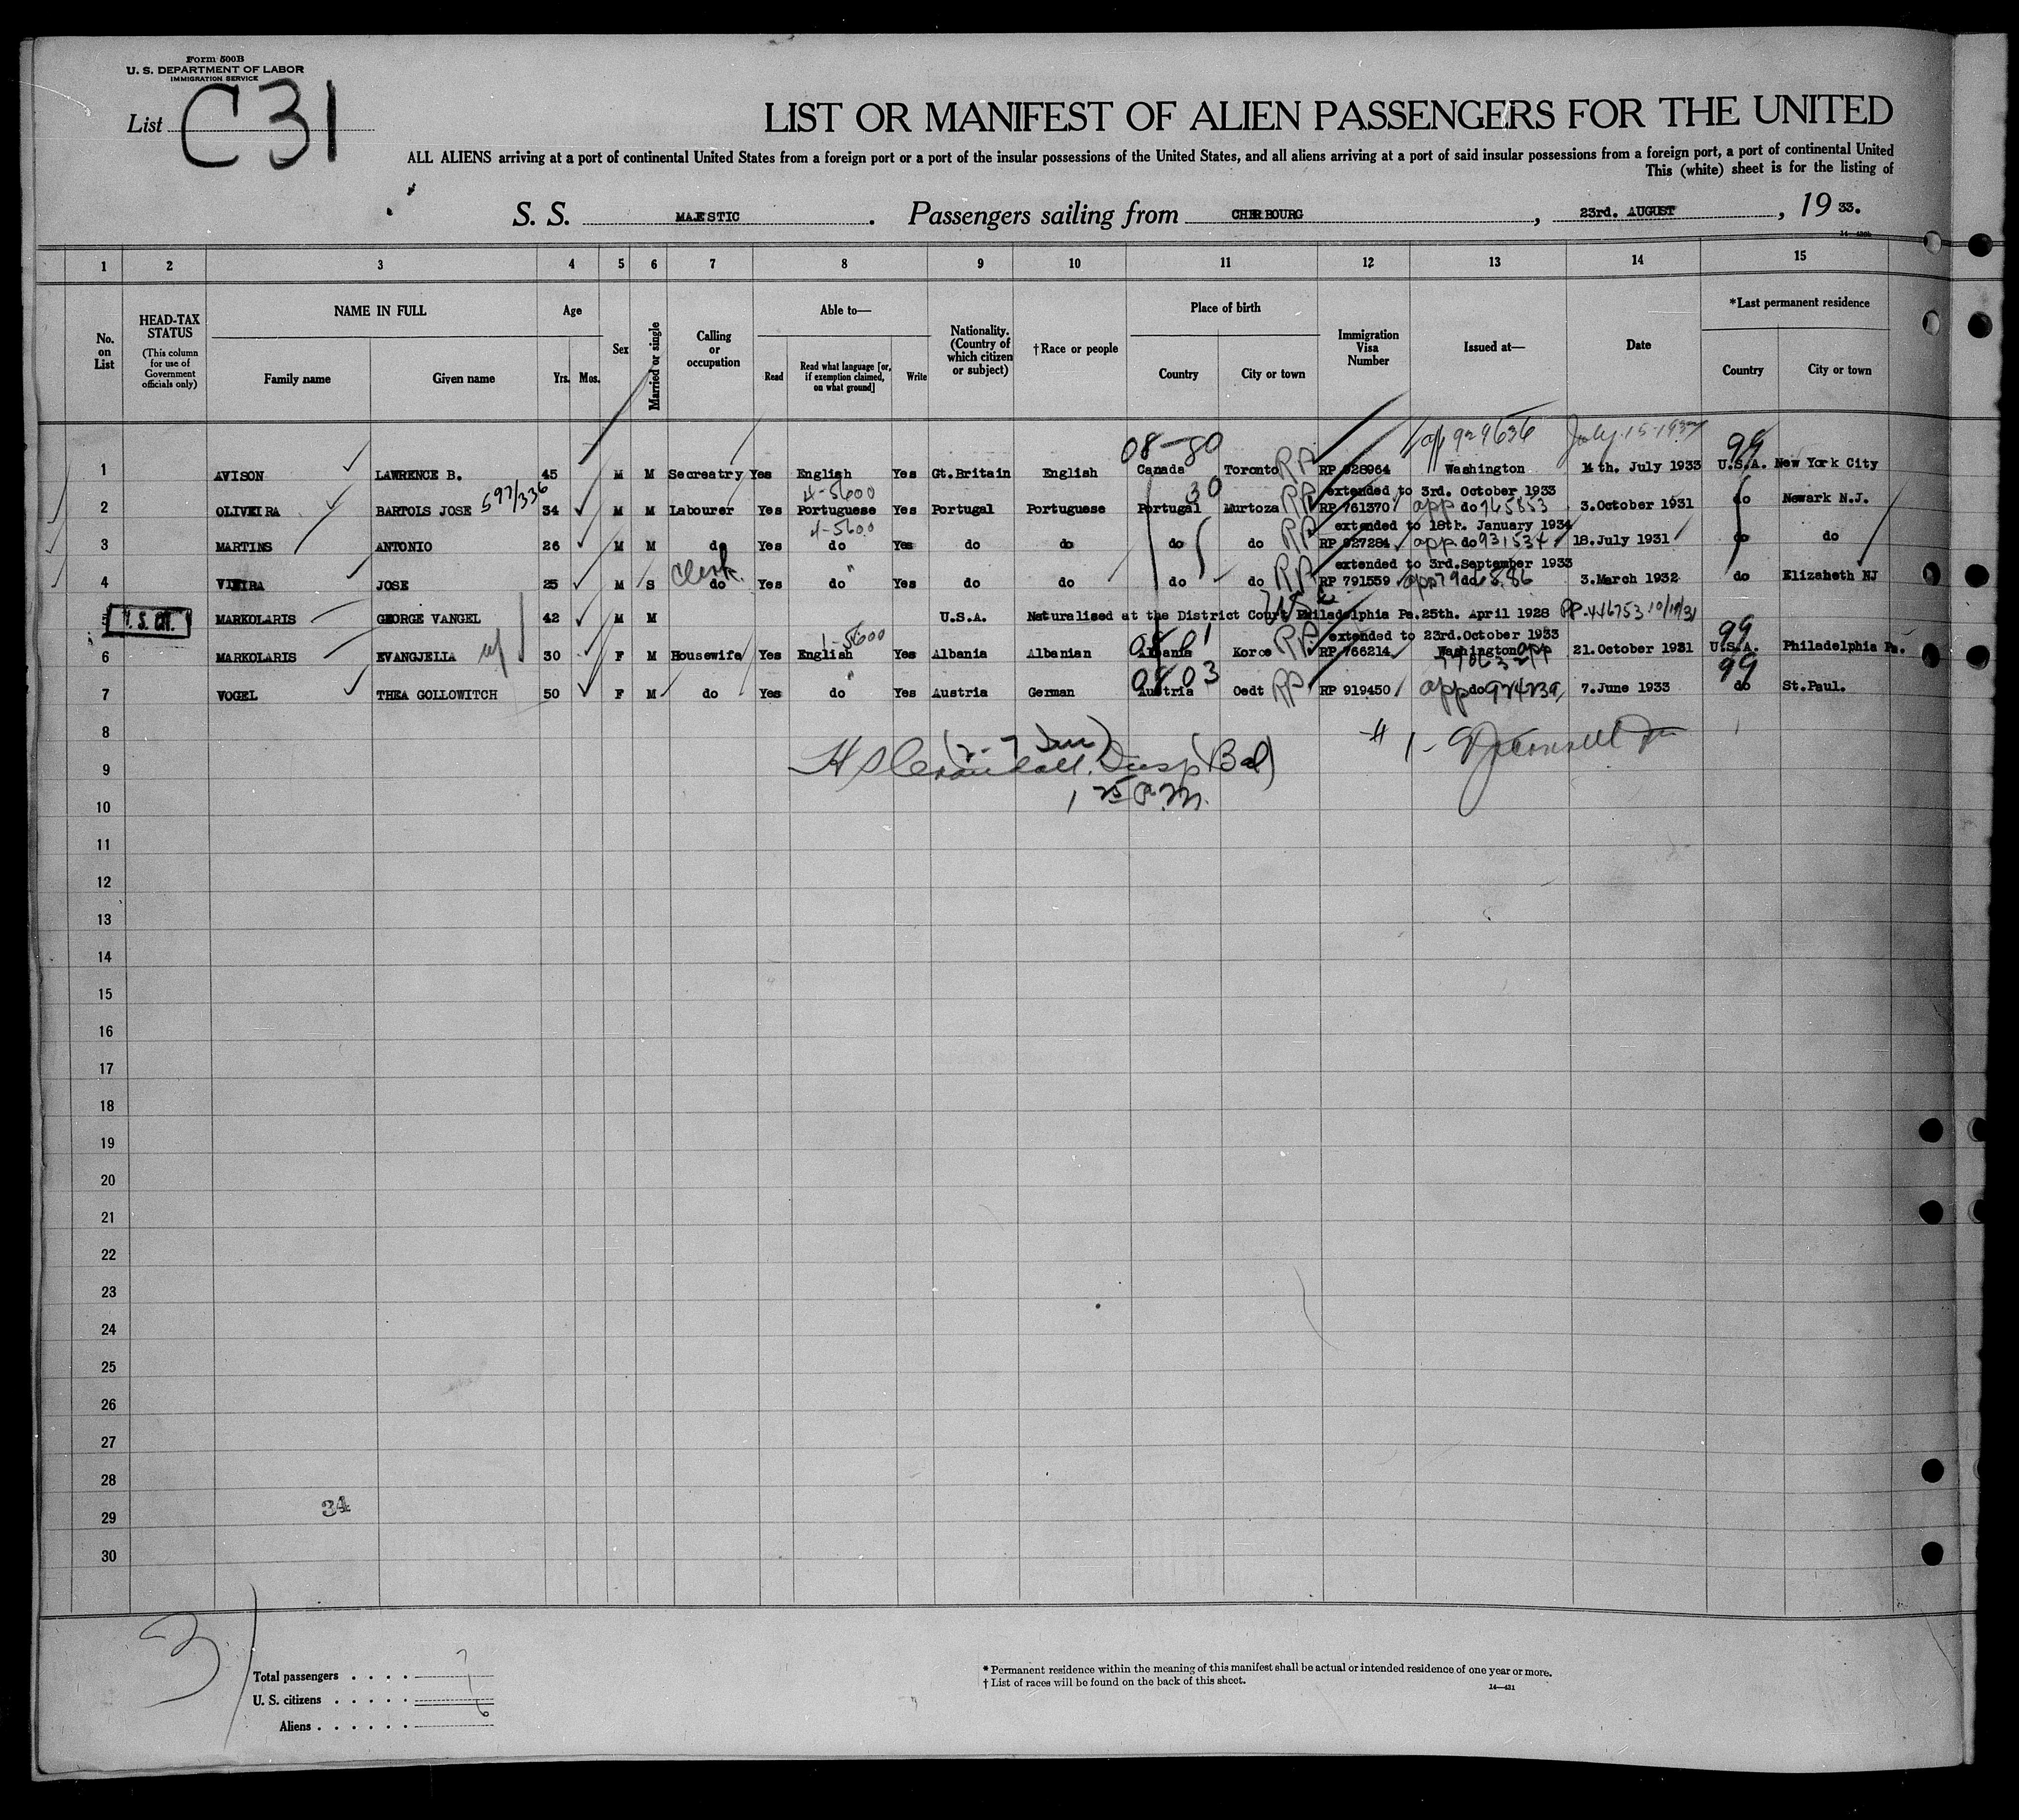 Form 500B
U. S. DEPARTMENT OF LABOR
IMMIGRATION SERVICE
List C31
LIST OR MANIFEST OF ALIEN PASSENGERS FOR THE UNITED
ALL ALIENS arriving at a port of continental United States from a foreign port or a port of the insular possessions of the United States, and all aliens arriving at a port of said insular possessions from a foreign port, a port of continental United
This (white) sheet is for the listing of
S. S. MAJESTIC. Passengers sailing from CHERBOURG, 23rd. AUGUST, 19 33.
1 2 3 4 5 6 7 8 9 10 11 12 13 14 15
No. on List
HEAD-TAX STATUS
(This column for use of Government officials only)
NAME IN FULL
Family name Given name
Age
Yrs. Mos.
Sex
Married or single
Calling or occupation
Able to—
Read Read what language [or, if exemption claimed, on what ground] Write
Nationality. (Country of which citizen or subject)
†Race or people
Place of birth
Country City or town
Immigration Visa Number
Issued at—
Date
*Last permanent residence
Country City or town
08-80 app 929636 July 15-1933 99
1 AVISON LAWRENCE B. 45 M M Secreatry Yes English Yes Gt.Britain English Canada Toronto RP RP 928964 Washington 14th. July 1933 U.S.A. New York City
4-5600 30 extended to 3rd. October 1933
2 OLIVEIRA BARTOLS JOSE 597/336 34 M M Labourer Yes Portuguese Yes Portugal Portuguese Portugal Murtoza RP RP 761370 app do 765853 3.October 1931 do Newark N.J.
4-5600 extended to 18th. January 1934
3 MARTINS ANTONIO 26 M M do Yes do Yes do do do do RP RP 927284 app do 931534 18.July 1931 do do
Clerk. " extended to 3rd.September 1933
4 VIEIRA JOSE 25 M S do Yes do Yes do do do do RP RP 791559 app do 3.March 1932 do Elizabeth NJ
5 U.S. CIT. MARKOLARIS GEORGE VANGEL 42 M M U.S.A. Naturalised at the District Court Philadelphia Pa.25th. April 1928 PP-446753 10/19/31
1-5600 08 01 extended to 23rd.October 1933 99
6 MARKOLARIS EVANGJELIA w/ 30 F M Housewife Yes English Yes Albania Albanian Albania Korce RP RP 766214 Washington app 21.October 1931 U.S.A. Philadelphia Pa.
" 08 03 99
7 VOGEL THEA GOLLOWITCH 50 F M do Yes do Yes Austria German Austria Oedt RP RP 919450 app do 924239 7.June 1933 do St.Paul.
8
9
10
11
12
13
14
15
16
17
18
19
20
21
22
23
24
25
26
27
28
29
30
34
31
Total passengers . . . . 7
U. S. citizens . . . . . 1
Aliens . . . . . . 6
* Permanent residence within the meaning of this manifest shall be actual or intended residence of one year or more.
† List of races will be found on the back of this sheet.
14—431